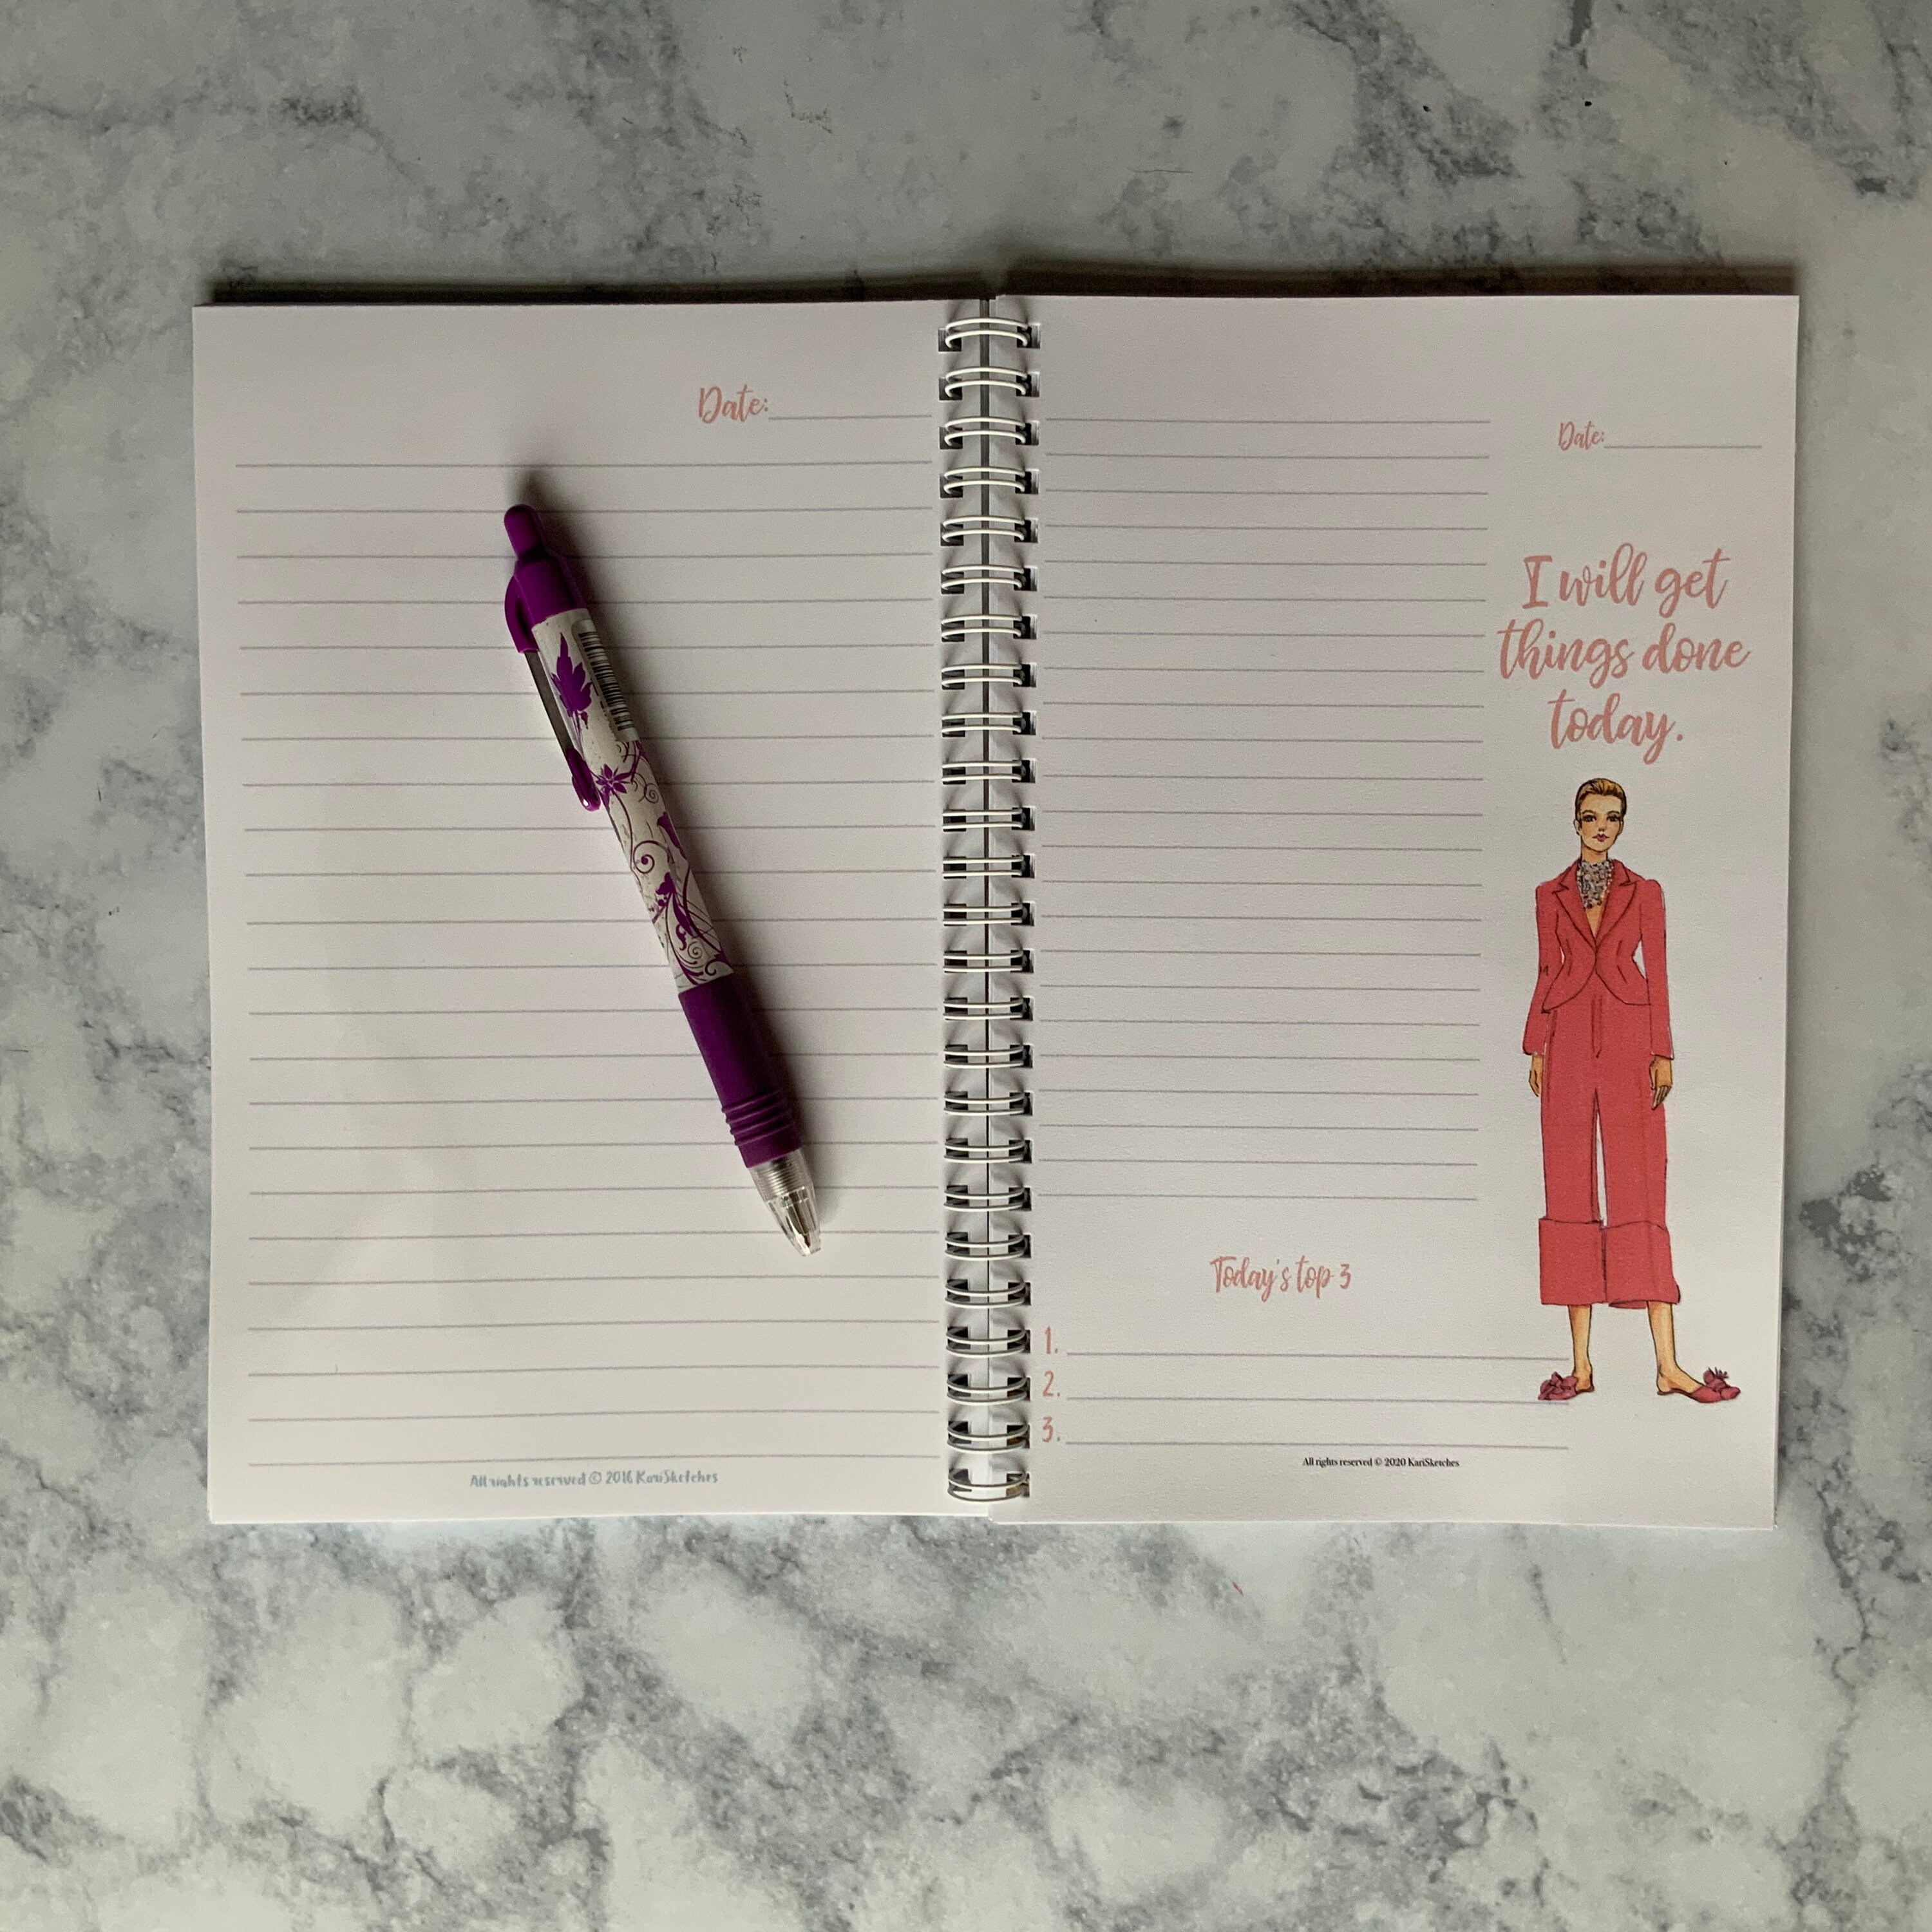 Date:
All rights reserved © 2016 KariSketches
Date:
I will get
things done
today.
Today's top 3
1.
2.
3.
All rights reserved © 2020 KariSketches